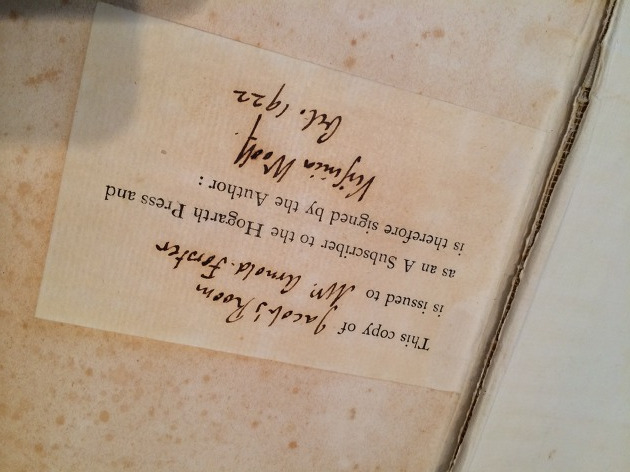 This copy of Jacob's Room
is issued to Mr. Arnold-Forster
as an A Subscriber to the Hogarth Press and
is therefore signed by the Author :
Virginia Woolf.
Oct. 1922